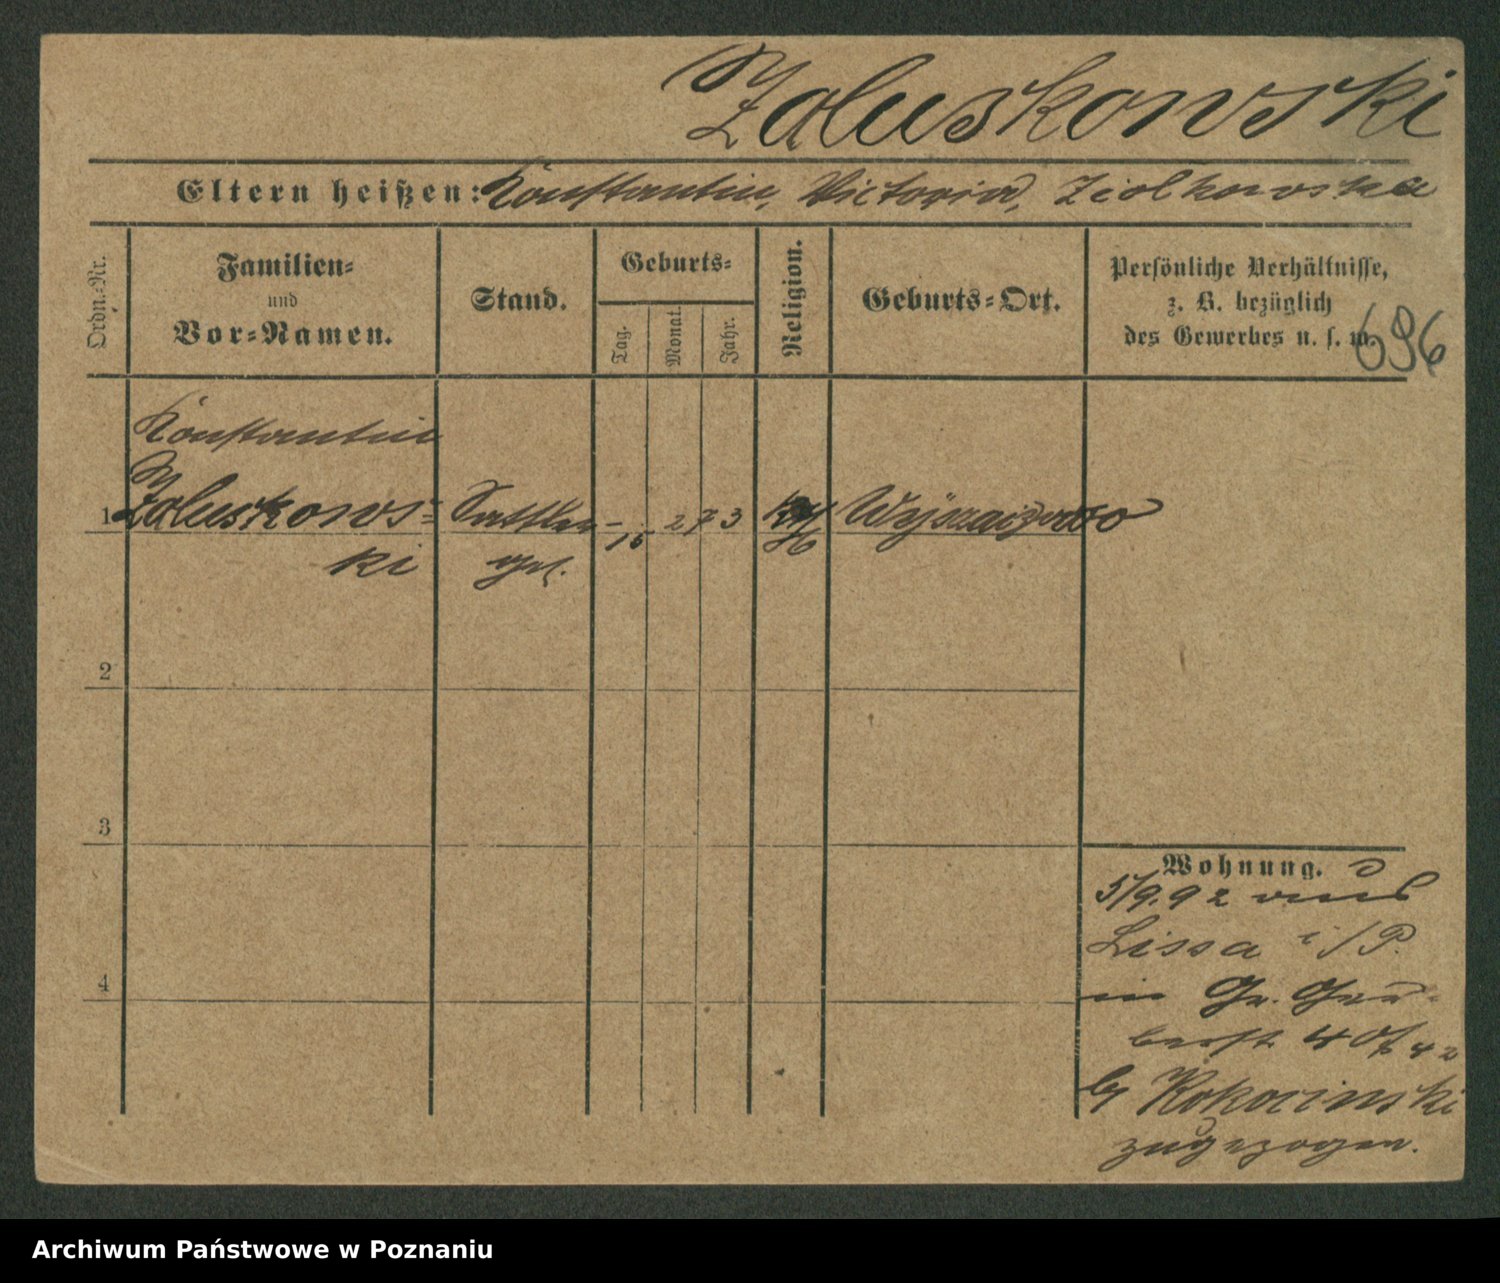 Zaluskowski
Eltern heißen: Konstantin, Victoria, Ziolkowska
Ordn.-Nr.
Familien-
und
Vor-Namen.
Stand.
Geburts-
Tag.
Monat.
Jahr.
Religion.
Geburts-Ort.
Persönliche Verhältnisse,
z. B. bezüglich
des Gewerbes u. s. w.
696
Konstantin
1 Zaluskows-
ki
Sattler-
gel.
15 2 73
2
3
4
Wohnung.
5/9. 92 aus
Lissa i/P.
in Gr. Ger-
berstr. 40
b/ Kokocinski
zugezogen.
Archiwum Państwowe w Poznaniu